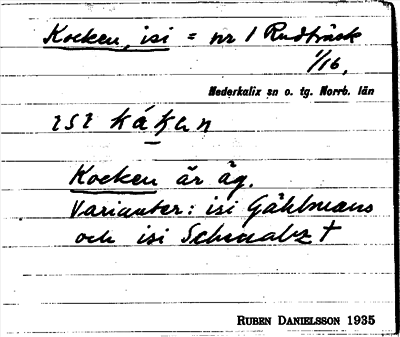 Kocken, isi = nr 1 Rudträsk
1/16,
Nederkalix sn o. tg. Norrb. län
ɩsɩ káḵen
Kocken är äg.
Varianter: isi Gählmans
och isi Schwalz †
RUBEN DANIELSSON 1935